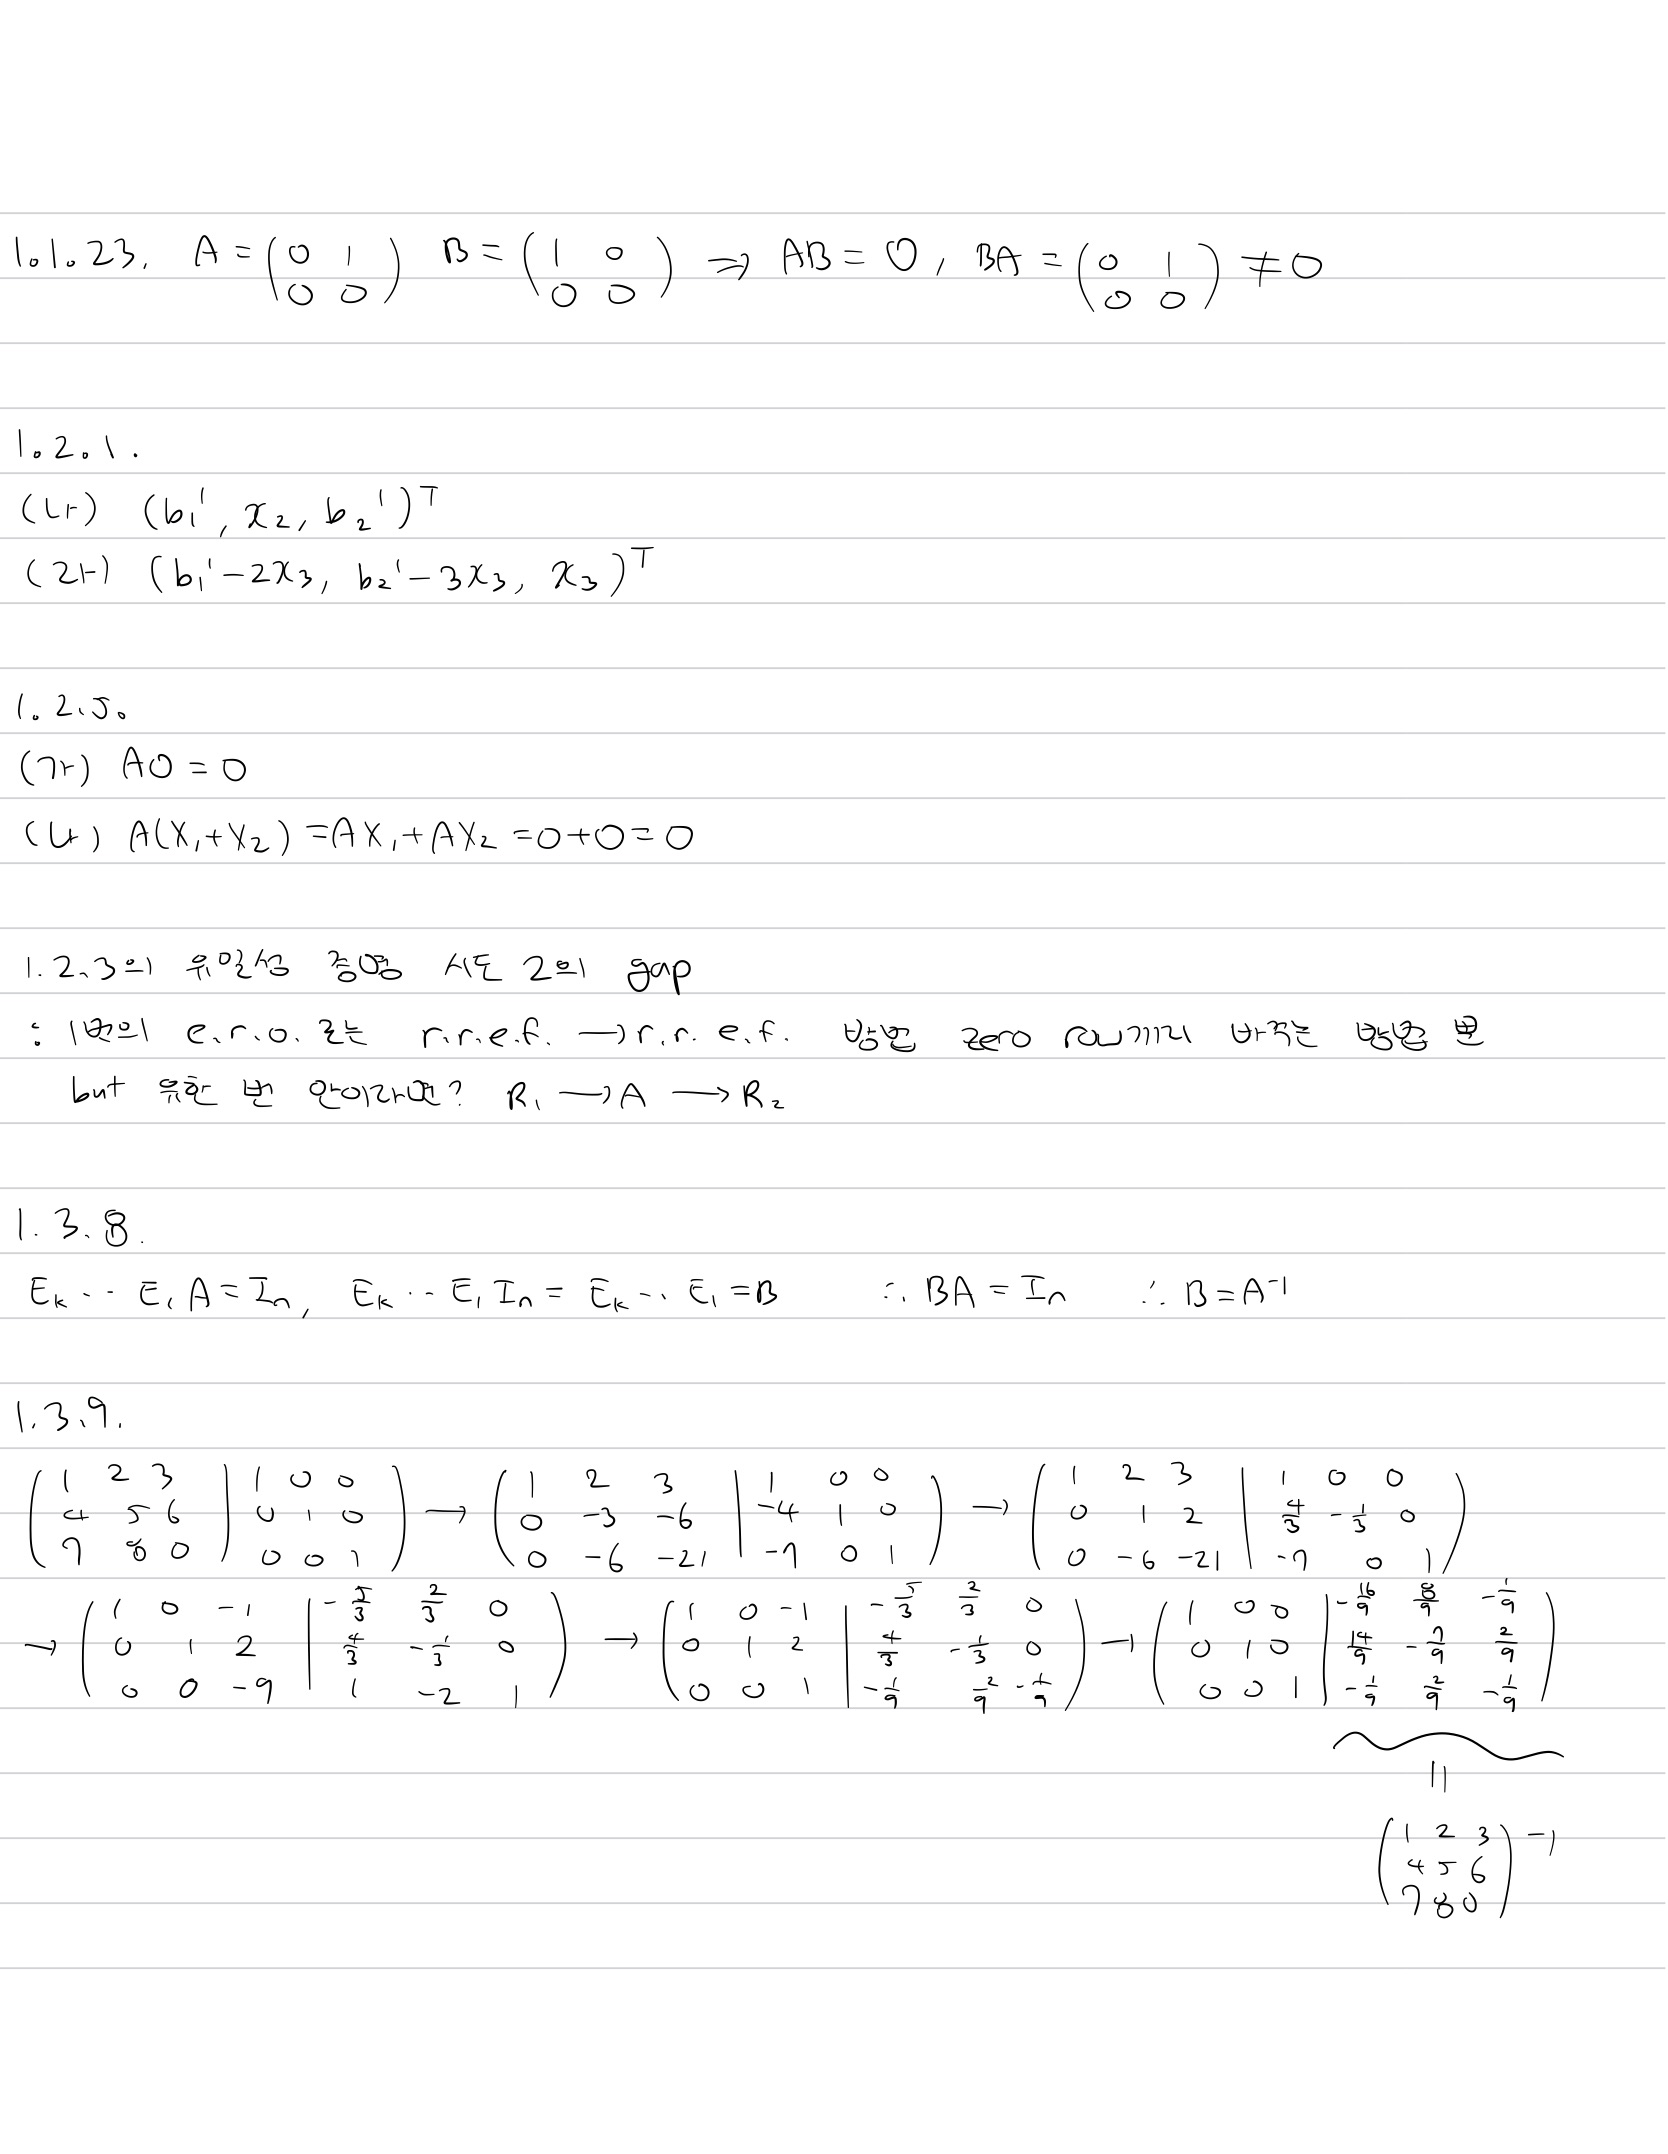 1.1.23. A = (0 1 / 0 0) B = (1 0 / 0 0) ⇒ AB = O, BA = (0 1 / 0 0) ≠ O
1.2.1.
(나) (b₁', x₂, b₂')ᵀ
(라) (b₁'-2x₃, b₂'-3x₃, x₃)ᵀ
1.2.5.
(가) AO = O
(나) A(X₁+X₂) = AX₁+AX₂ = 0+0 = 0
1.2.3의 유일성 증명 시도 2의 gap
: 1번의 e.r.o. 로는 r.r.e.f. → r.r.e.f. 방법 zero row끼리 바꾸는 방법 뿐
but 유한 번 안이라면? R₁ → A → R₂
1.3.8.
Eₖ ·· E₁ A = Iₙ, Eₖ ·· E₁ Iₙ = Eₖ ·· E₁ = B ∴ BA = Iₙ ∴ B = A⁻¹
1.3.9.
(1 2 3 | 1 0 0 / 4 5 6 | 0 1 0 / 7 8 0 | 0 0 1) → (1 2 3 | 1 0 0 / 0 -3 -6 | -4 1 0 / 0 -6 -21 | -7 0 1) → (1 2 3 | 1 0 0 / 0 1 2 | 4/3 -1/3 0 / 0 -6 -21 | -7 0 1)
→ (1 0 -1 | -5/3 2/3 0 / 0 1 2 | 4/3 -1/3 0 / 0 0 -9 | 1 -2 1) → (1 0 -1 | -5/3 2/3 0 / 0 1 2 | 4/3 -1/3 0 / 0 0 1 | -1/9 2/9 -1/9) → (1 0 0 | -16/9 8/9 -1/9 / 0 1 0 | 14/9 -7/9 2/9 / 0 0 1 | -1/9 2/9 -1/9)
||
(1 2 3 / 4 5 6 / 7 8 0)⁻¹